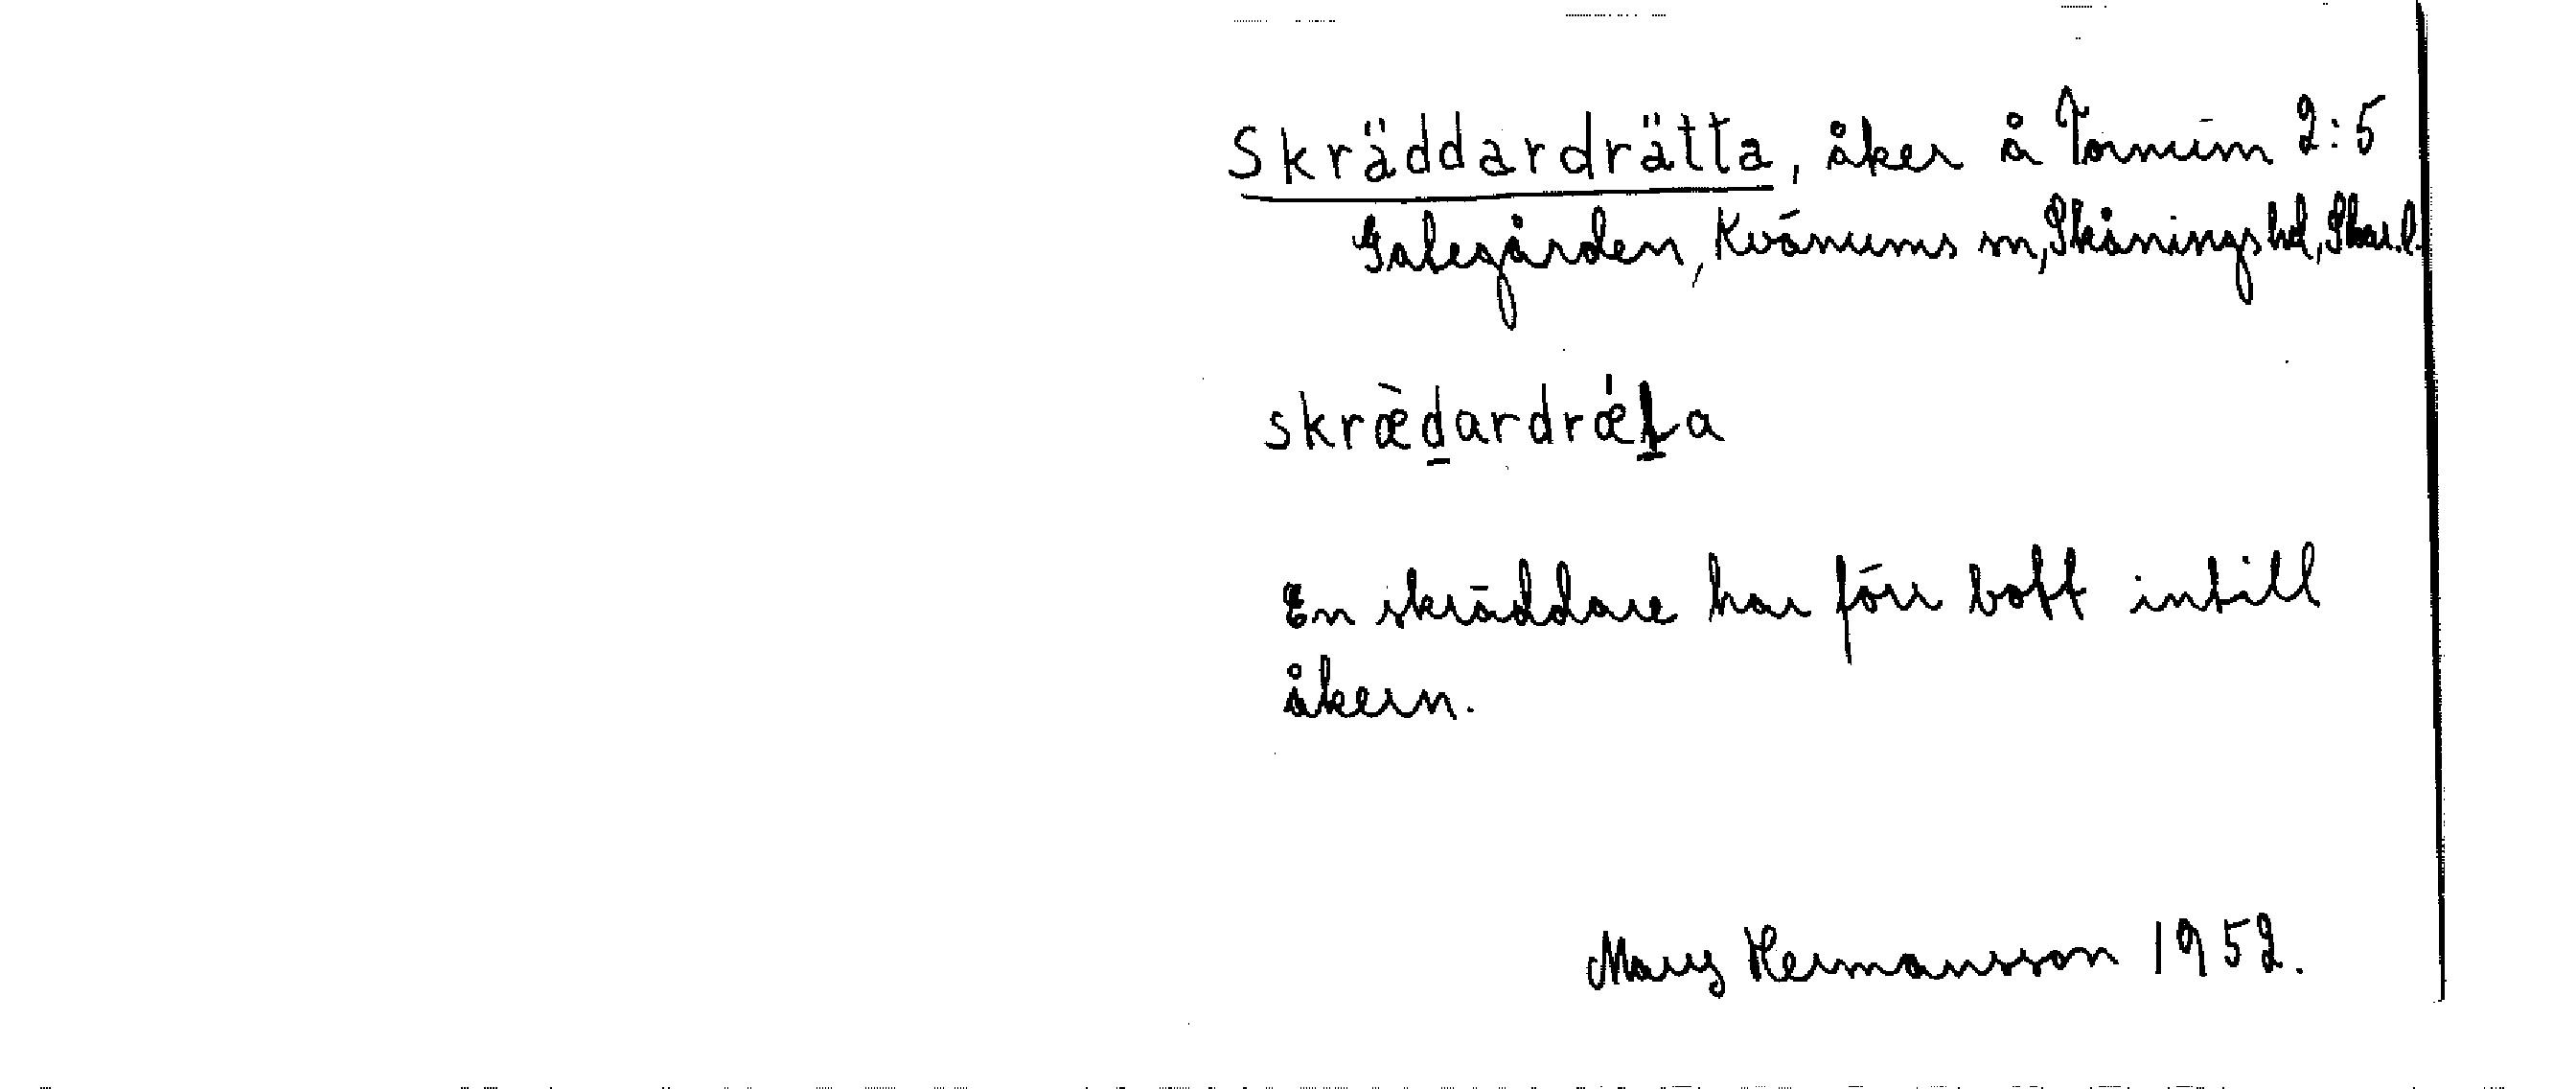 Skräddardrätta, åker å Tornum 2:5
Galegården, Kvänums sn, Skånings hd, Skar.l.
skræ̀d̲ardrǽt̲a
En skräddare har förr bott intill
åkern.
Mary Hermansson 1952.